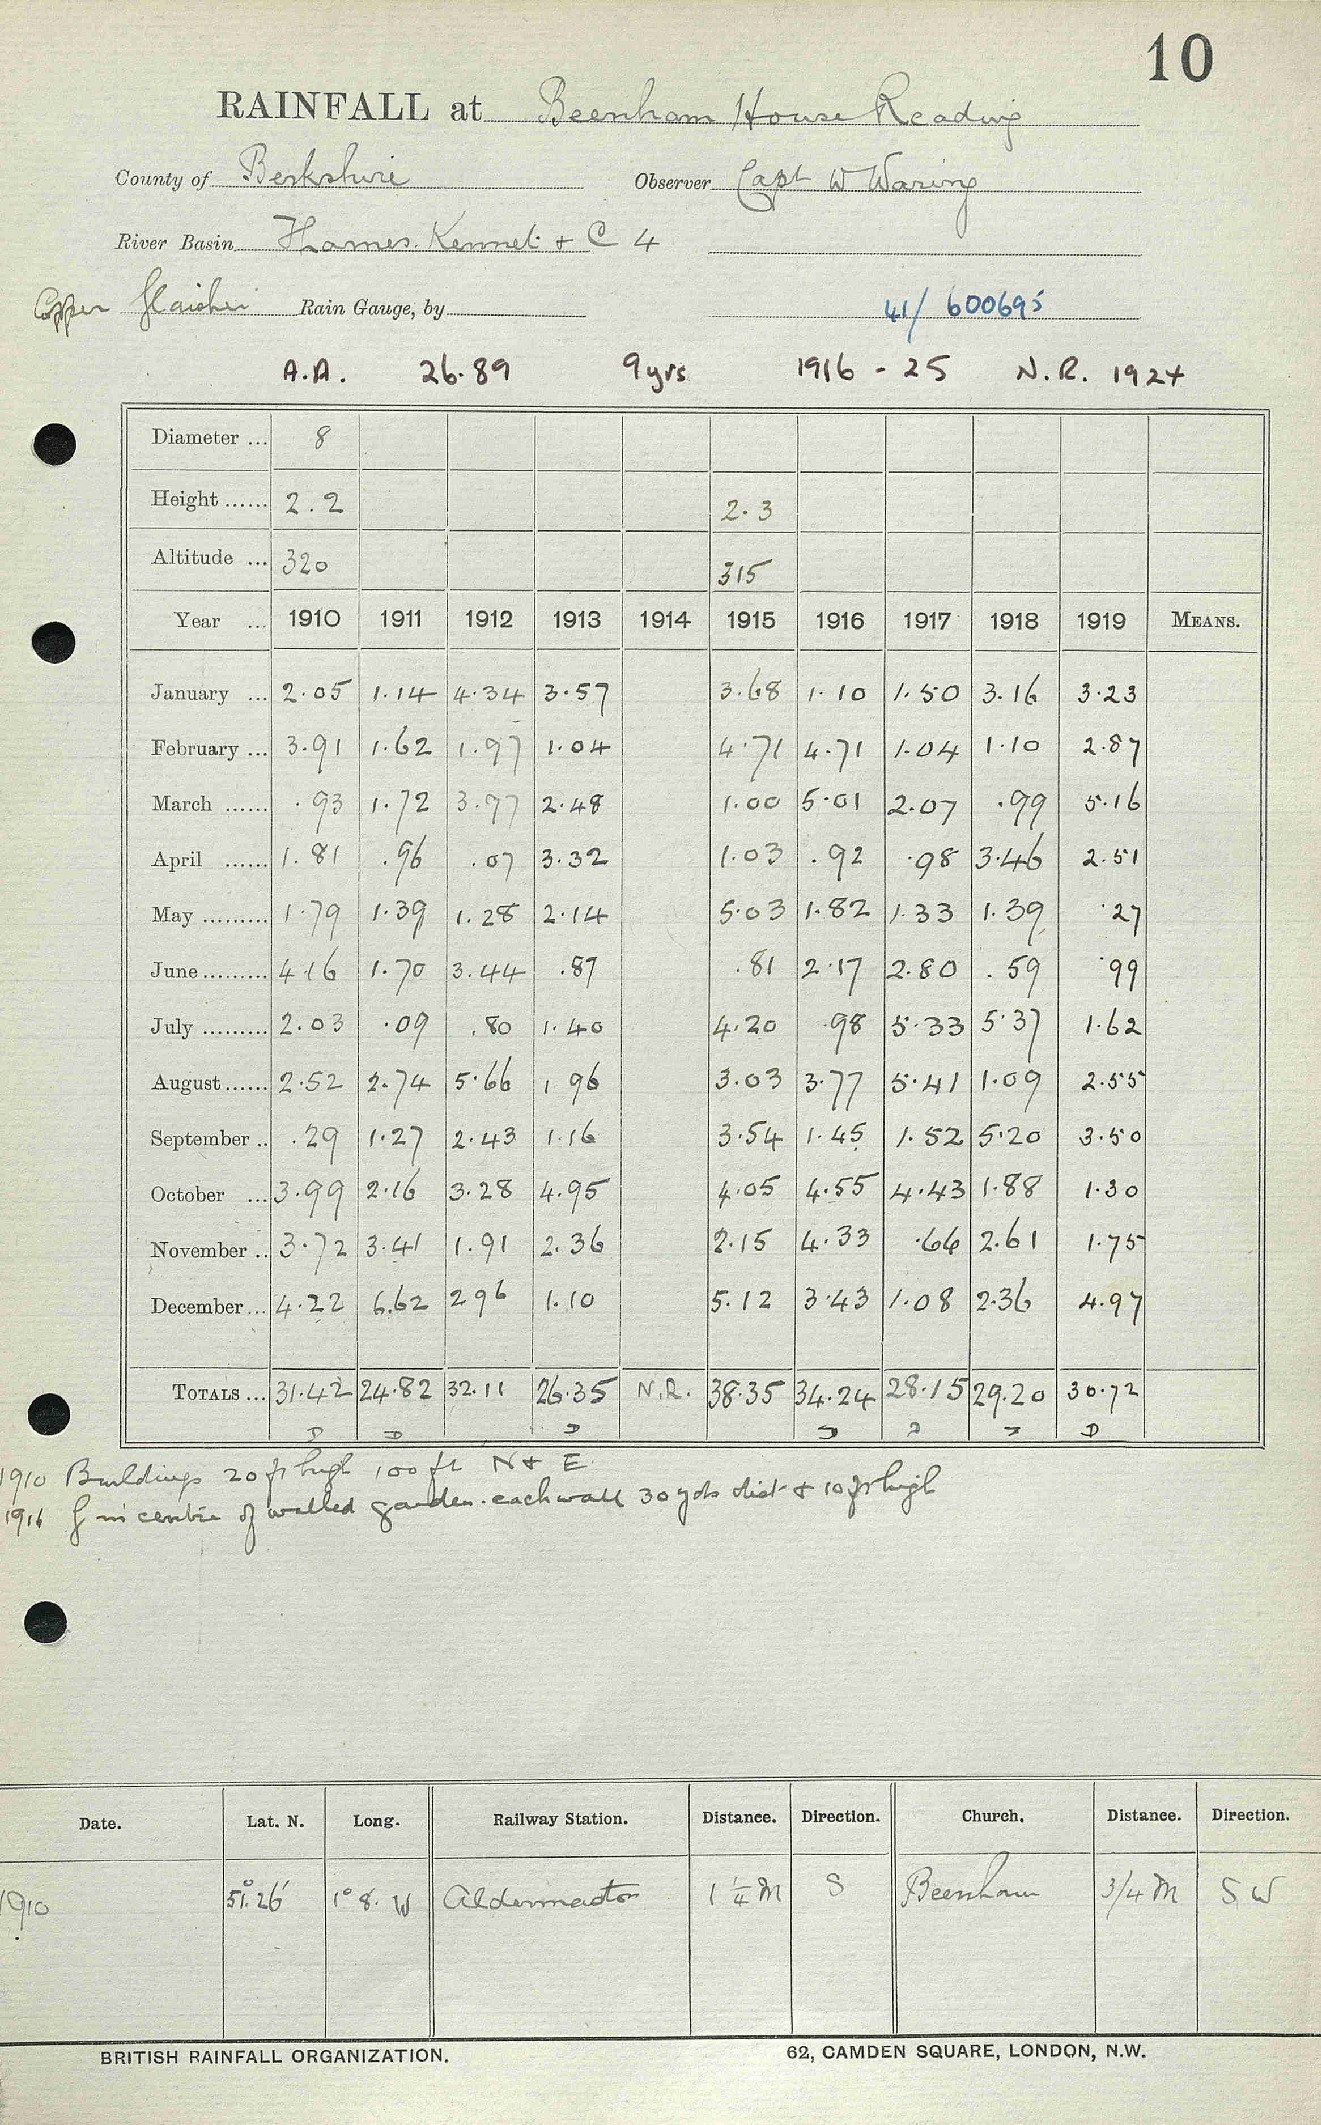 10
RAINFALL at Beenham House Reading
County of Berkshire Observer Capt W Waring
River Basin Thames. Kennet + C 4
Copper Glaisher Rain Gauge, by
41/ 600695
A.A. 26.89 9 yrs 1916 - 25 N.R. 1924
Diameter ... 8
Height ...... 2.2 2.3
Altitude ... 320 315
Year ... 1910 1911 1912 1913 1914 1915 1916 1917 1918 1919 MEANS.
January ... 2.05 1.14 4.34 3.57 3.68 1.10 1.50 3.16 3.23
February ... 3.91 1.62 1.97 1.04 4.71 4.71 1.04 1.10 2.87
March ...... .93 1.72 3.97 2.48 1.00 5.01 2.07 .99 5.16
April ...... 1.81 .96 .07 3.32 1.03 .92 .98 3.46 2.51
May ......... 1.79 1.39 1.28 2.14 5.03 1.82 1.33 1.39 .27
June ......... 4.16 1.70 3.44 .87 .81 2.17 2.80 .59 .99
July ......... 2.03 .09 .80 1.40 4.20 .98 5.33 5.37 1.62
August ...... 2.52 2.74 5.66 1 96 3.03 3.77 5.41 1.09 2.55
September .. .29 1.27 2.43 1.16 3.54 1.45 1.52 5.20 3.50
October ... 3.99 2.16 3.28 4.95 4.05 4.55 4.43 1.88 1.30
November .. 3.72 3.41 1.91 2.36 2.15 4.33 .66 2.61 1.75
December ... 4.22 6.62 2 96 1.10 5.12 3.43 1.08 2.36 4.97
TOTALS ... 31.42 24.82 32.11 26.35 N.R. 38.35 34.24 28.15 29.20 30.72
1910 Buildings 20 ft high 100 ft N + E
1916 G in centre of walled garden. each wall 30 yds dist + 10 ft high
Date. Lat. N. Long. Railway Station. Distance. Direction. Church. Distance. Direction.
1910 51°.26' 1° 8. W Aldermaston 1 1/4 M S Beenham 3/4 M S W
BRITISH RAINFALL ORGANIZATION. 62, CAMDEN SQUARE, LONDON, N.W.